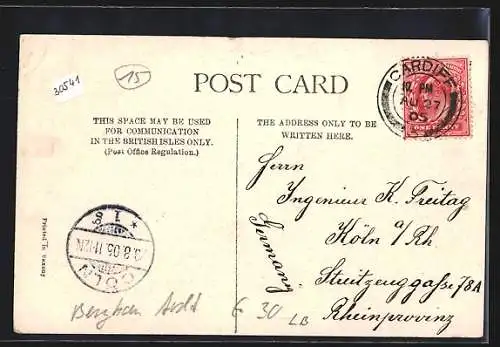 30541
15
POST CARD
CARDIFF
12 PM
AU 27
05
ONE PENNY
THIS SPACE MAY BE USED
FOR COMMUNICATION
IN THE BRITISH ISLES ONLY.
(Post Office Regulation.)
THE ADDRESS ONLY TO BE
WRITTEN HERE.
Herrn
Ingenieur K. Freitag
Köln a/Rh
Streitzeuggasse 78A
Rheinprovinz
Germany
Printed in Saxony
* 1
8.05. 11-12N
CÖLN
€ 30
LB